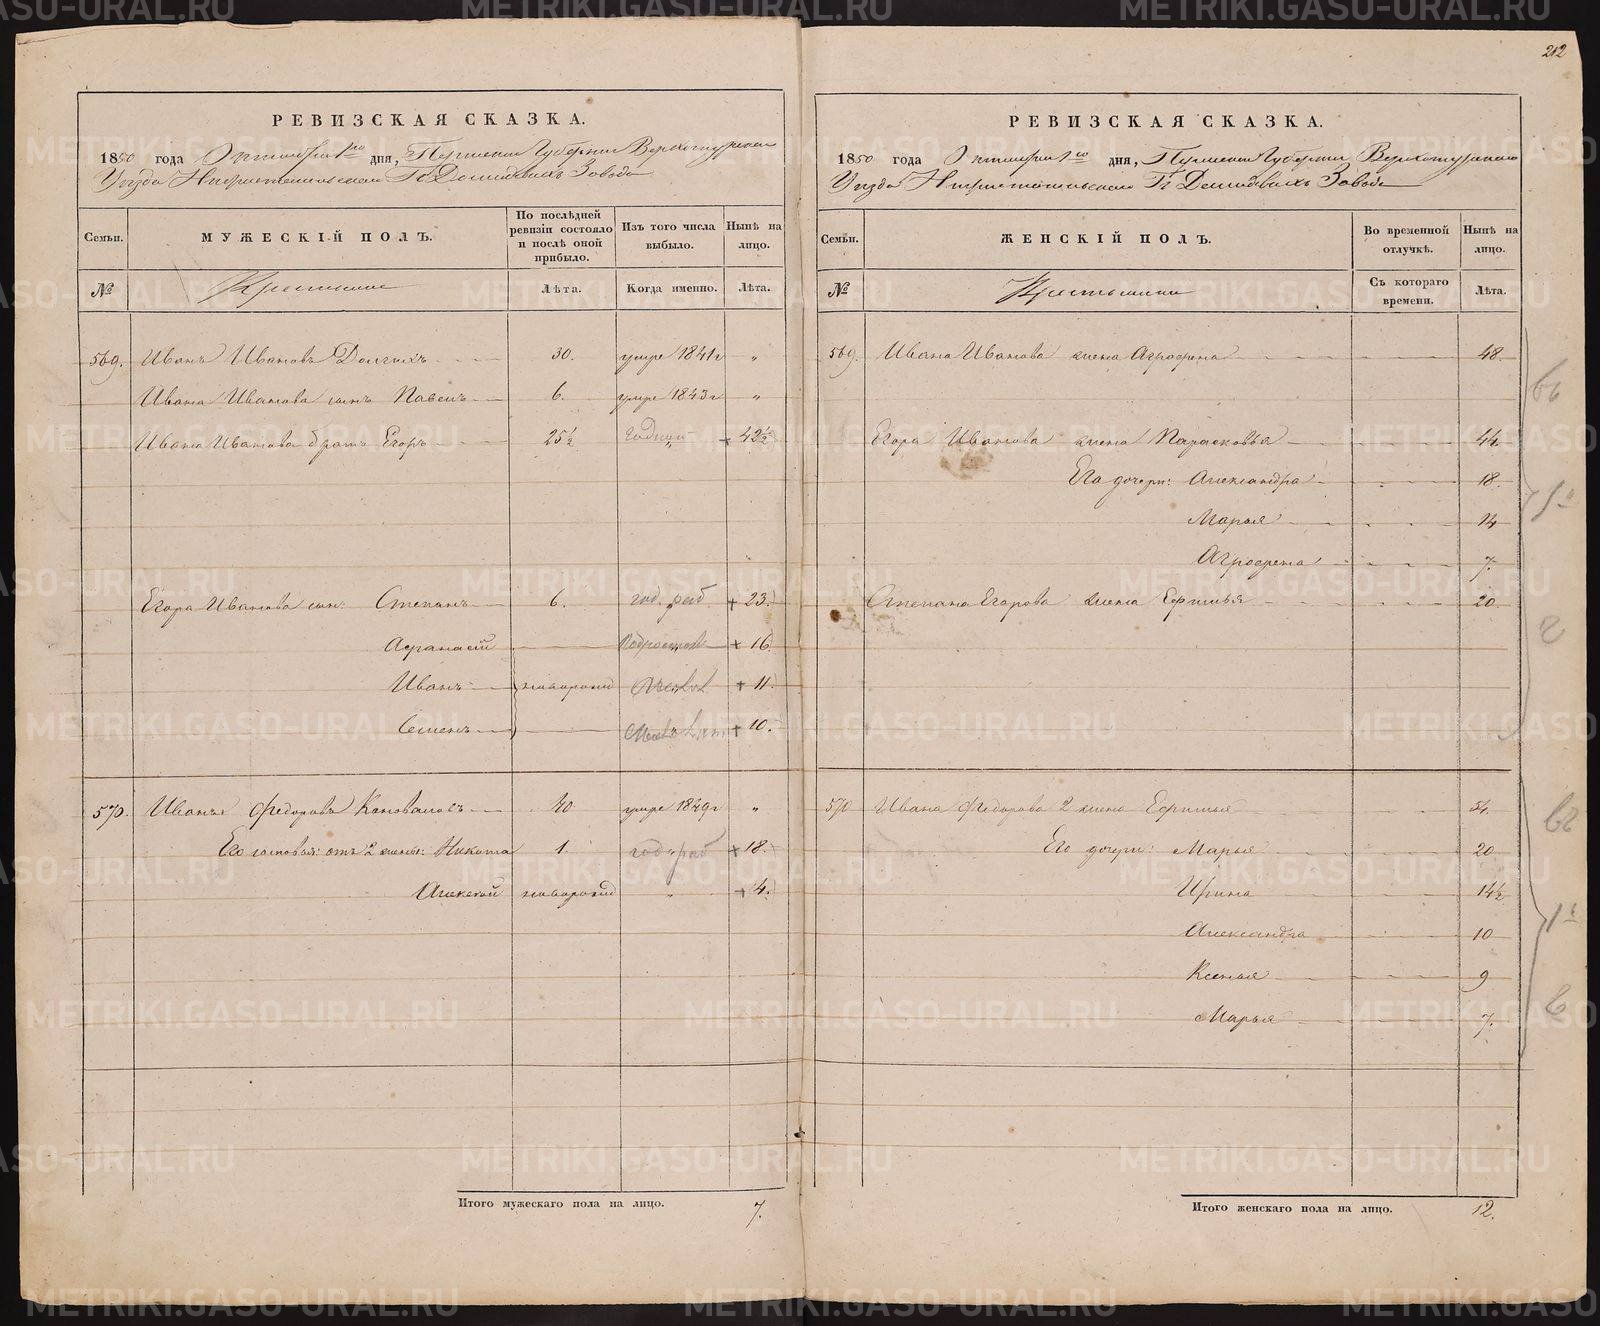 212
РЕВИЗСКАЯ СКАЗКА.
1850 года Октября 1го дня, Пермской Губернии Верхотурскаго
Уѣзда Нижнетагильскаго Гг Демидовыхъ Завода
Семьи.
МУЖЕСКІЙ ПОЛЪ.
По послѣдней ревизіи состояло и послѣ оной прибыло.
Изъ того числа выбыло.
Нынѣ на лицо.
№
Крестьяне
Лѣта.
Когда именно.
Лѣта.
569. Иванъ Ивановъ Долгихъ 30. умре 1841г "
Ивана Иванова сынъ Павелъ 6. умре 1843г "
Ивана Иванова братъ Егоръ 25½ Годный + 42½
Егора Иванова сын: Степанъ 6. год. раб. + 23.
Афанасій Подростокъ + 16.
Иванъ новорожд + 11.
Семенъ + 10.
570. Иванъ Федоровъ Коноваловъ 40 умре 1849г "
Его сыновья: отъ 2 жены: Никита 1. год. раб + 18.
Алексѣй новорожд " + 4.
Итого мужескаго пола на лицо. 7.
РЕВИЗСКАЯ СКАЗКА.
1850 года Октября 1го дня, Пермской Губернии Верхотурскаго
Уѣзда Нижнетагильскаго Гг Демидовыхъ Завода
Семьи.
ЖЕНСКІЙ ПОЛЪ.
Во временной отлучкѣ.
Нынѣ на лицо.
№
Крестьянки
Съ котораго времени.
Лѣта.
569. Ивана Иванова жена Агрофена 48.
Егора Иванова жена Парасковья 44.
Его дочери: Александра 18.
Марья 14
Агрофена 7.
Степана Егорова жена Ефимья 20.
570 Ивана Федорова 2 жена Ефимья 54.
Его дочери: Марья 20
Ирина 14½
Александра 10
Ксенья 9
Марья 7.
Итого женскаго пола на лицо. 12.
METRIKI.GASO-URAL.RU